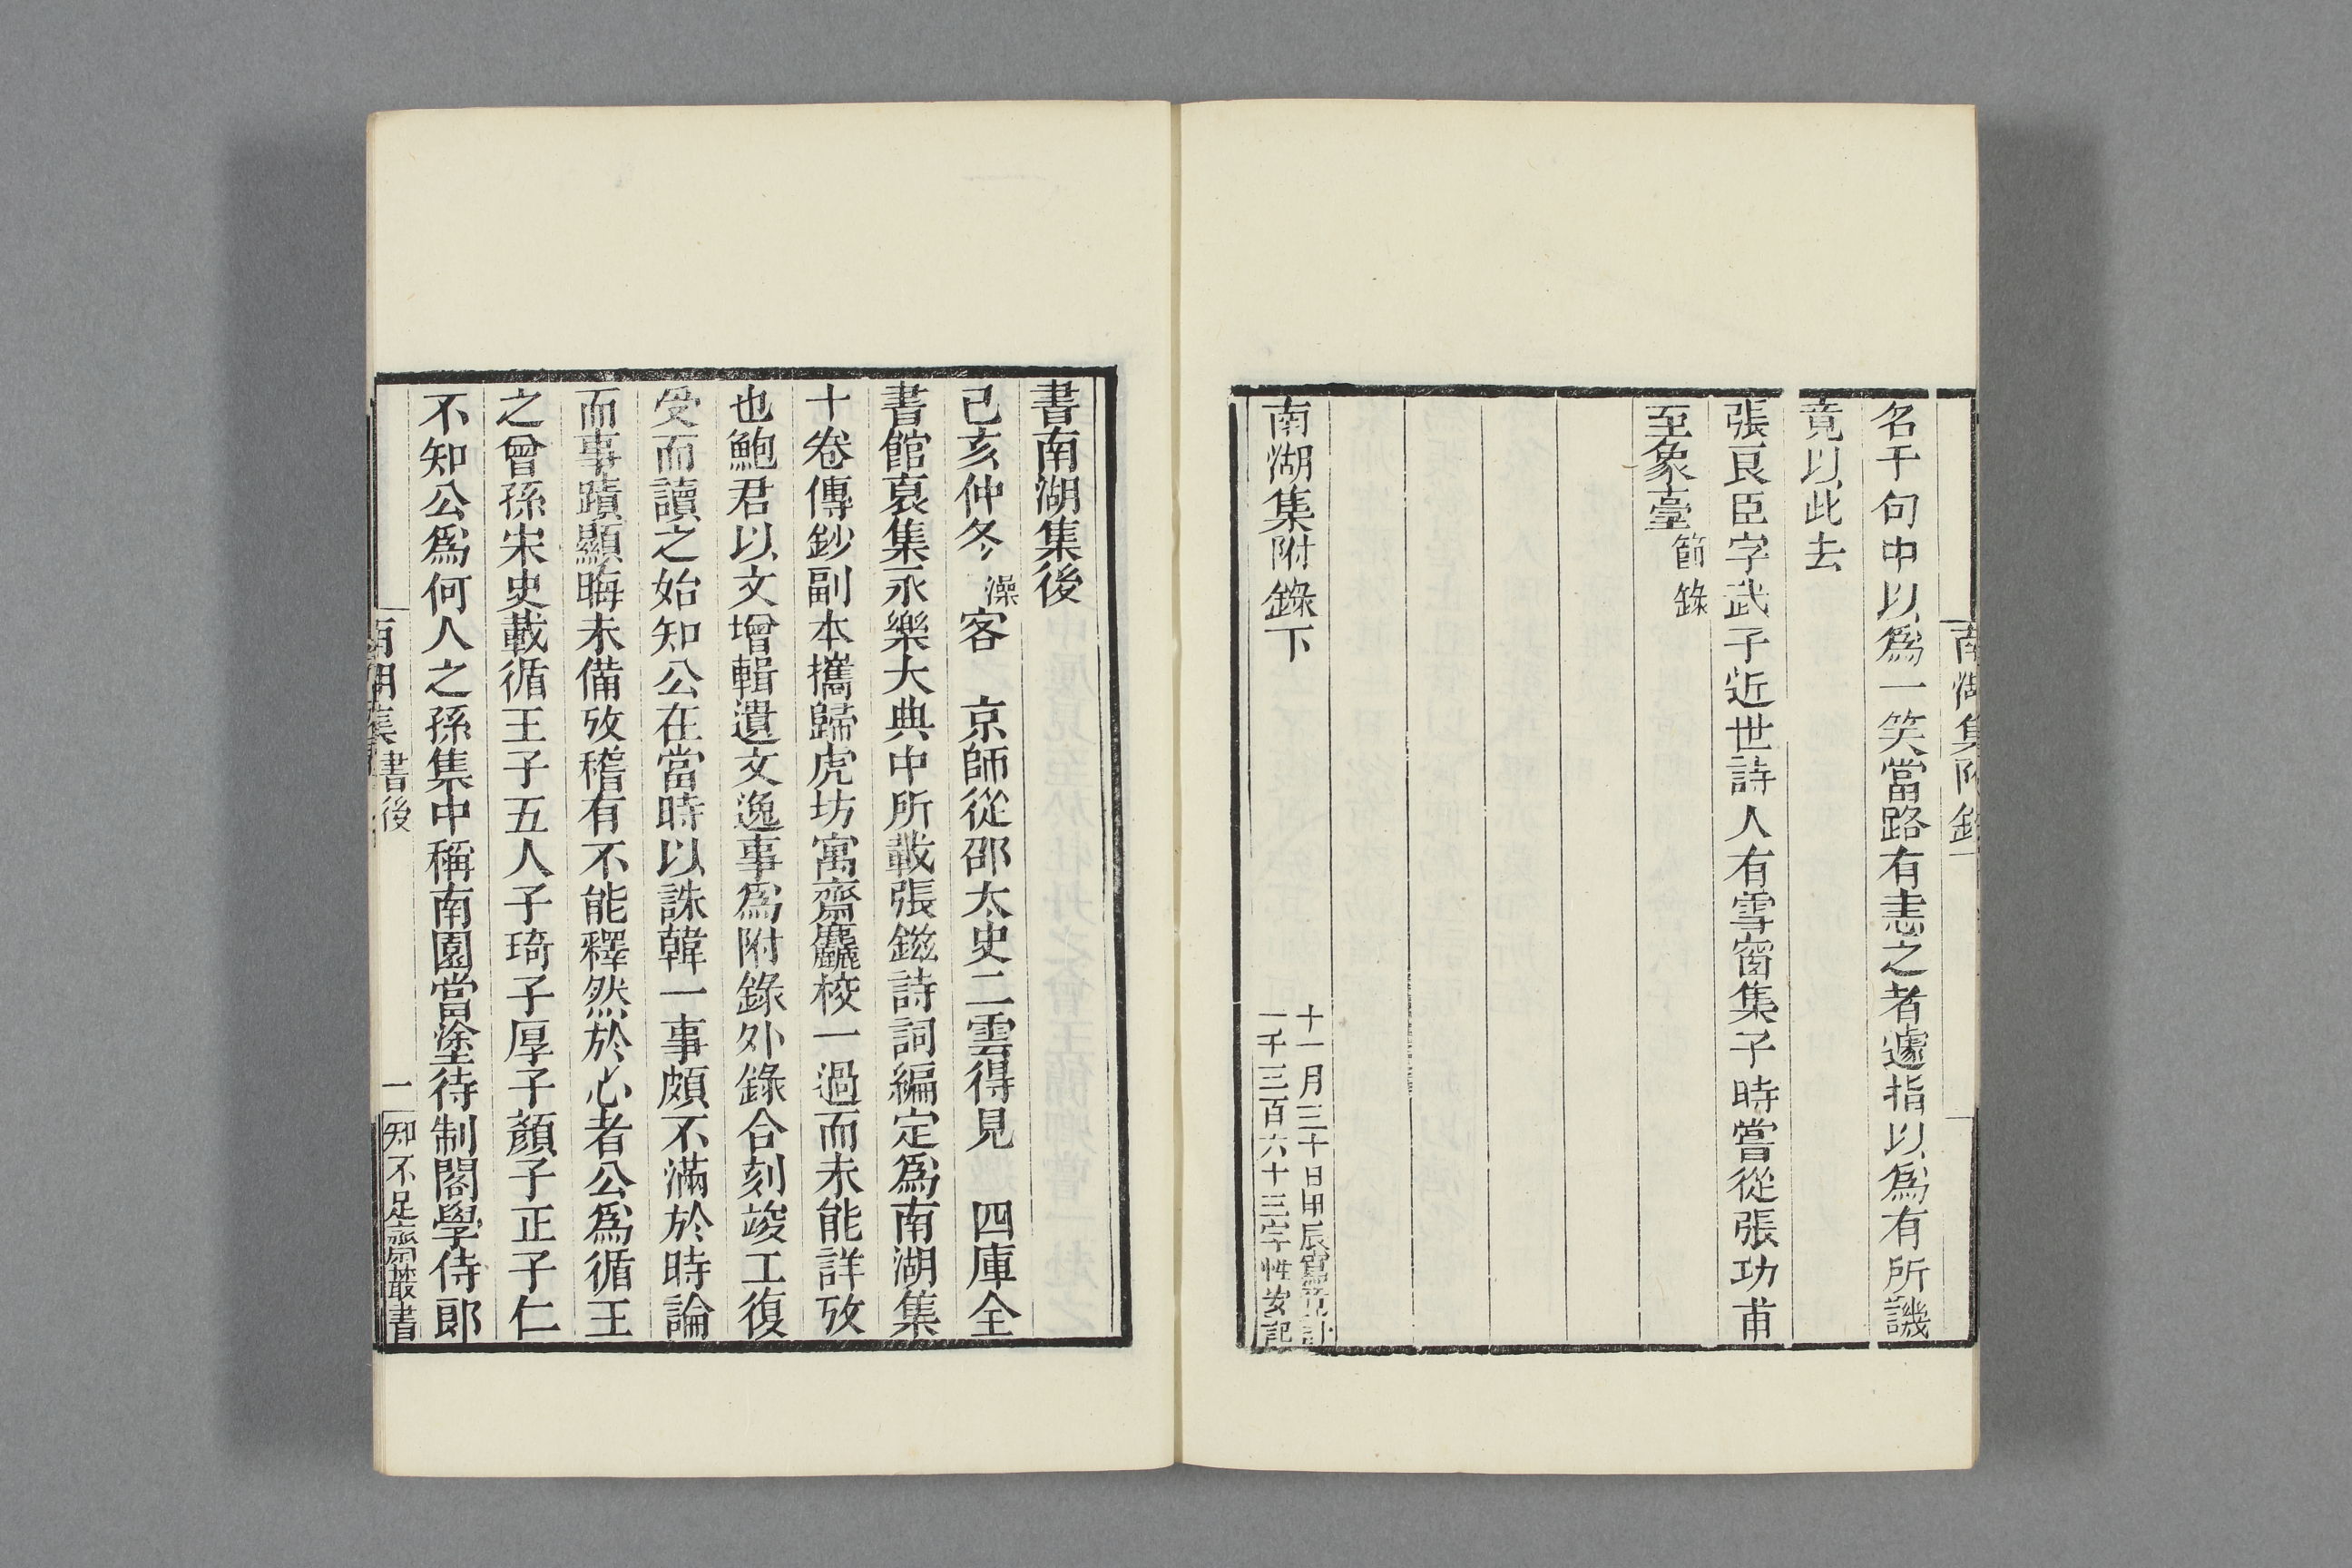 南湖集附錄
名于句中以爲一笑當路有恚之者遽指以爲有所譏
竟以此去
張良臣字武子近世詩人有雪窗集子時嘗從張功甫
至象臺節錄
南湖集附錄下
十一月三十日甲辰
一千三百六十三字性安記
書南湖集後
己亥仲冬澡客 京師從邵太史二雲得見 四庫全
書館裒集永樂大典中所載張鎡詩詞編定爲南湖集
十卷傳鈔副本攜歸虎坊寓齋麤校一過而未能詳攷
也鮑君以文增輯遺文逸事爲附錄外錄合刻竣工復
受而讀之始知公在當時以誅韓一事頗不滿於時論
而事蹟顯晦未備攷稽有不能釋然於心者公爲循王
之曾孫宋史載循王子五人子琦子厚子顏子正子仁
不知公爲何人之孫集中稱南園當塗待制閣學侍郎
南湖集書後
一
知不足齋叢書